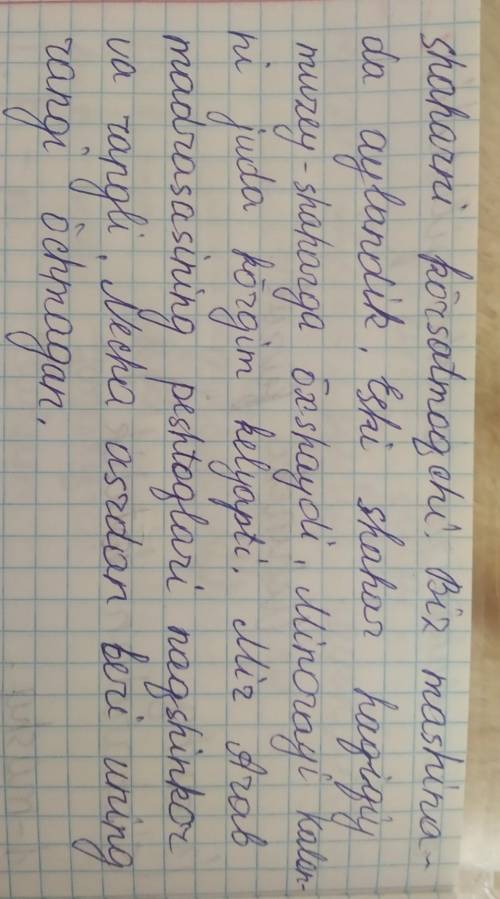 shaharni kōrsatmoqchi. Biz mashina-
da aylandik. Eski shahar haqiqiy
muzey-shaharga ōxshaydi. Minorayi kalon-
ni juda kōrgim kelyapti. Mir Arab
madrasasining peshtoqlari naqshinkor
va rangli. Necha asrdan beri uning
rangi ōchmagan.